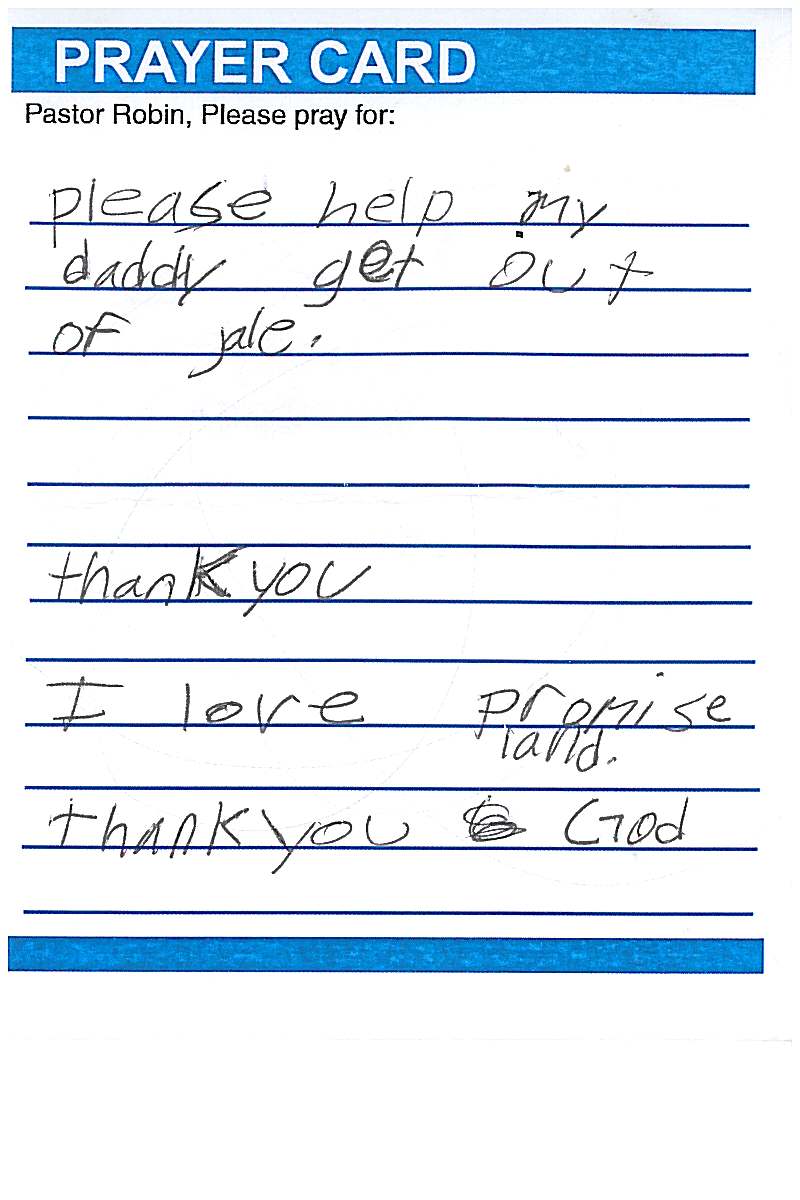 PRAYER CARD
Pastor Robin, Please pray for:
please help my
daddy get out
of jale.
thank you
I love promise
land.
thank you God